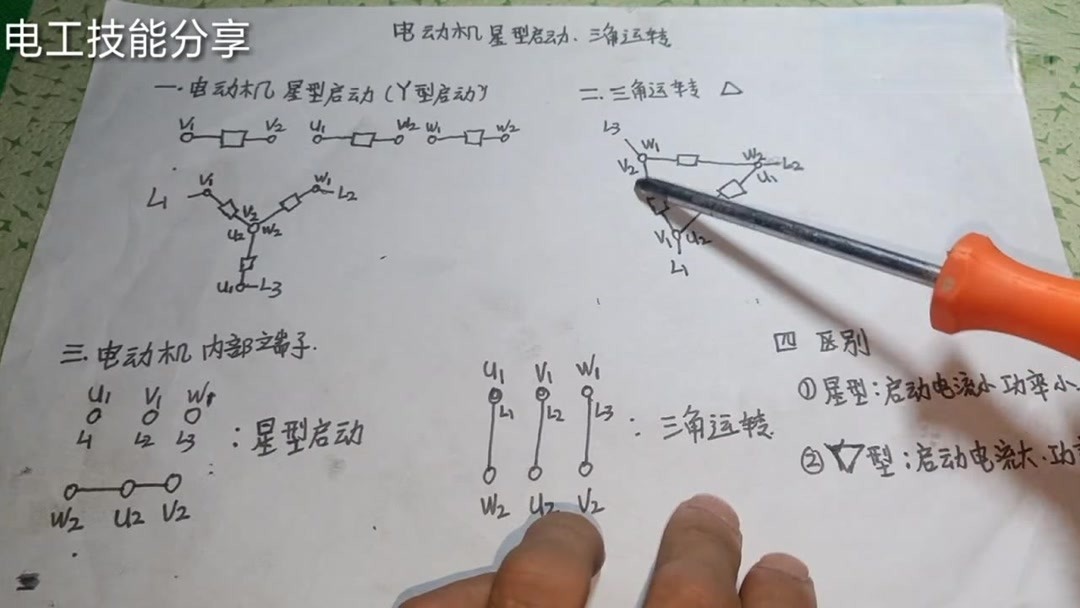 电工技能分享
电动机星型启动、三角运转
一.电动机星型启动(Y型启动)
V1 V2 U1 W2 W1 W2
L1 V1 V2 W1 L2
U2 W2
U1 L3
二.三角运转 △
L3 W1 W2 L2
V2 U1
V1 U2
L1
三.电动机内部立端子.
U1 V1 W1
L1 L2 L3
:星型启动
W2 U2 V2
U1 V1 W1
L1 L2 L3
:三角运转
W2 U2 V2
四 区别
①星型:启动电流小功率小
②▽型:启动电流大.功率